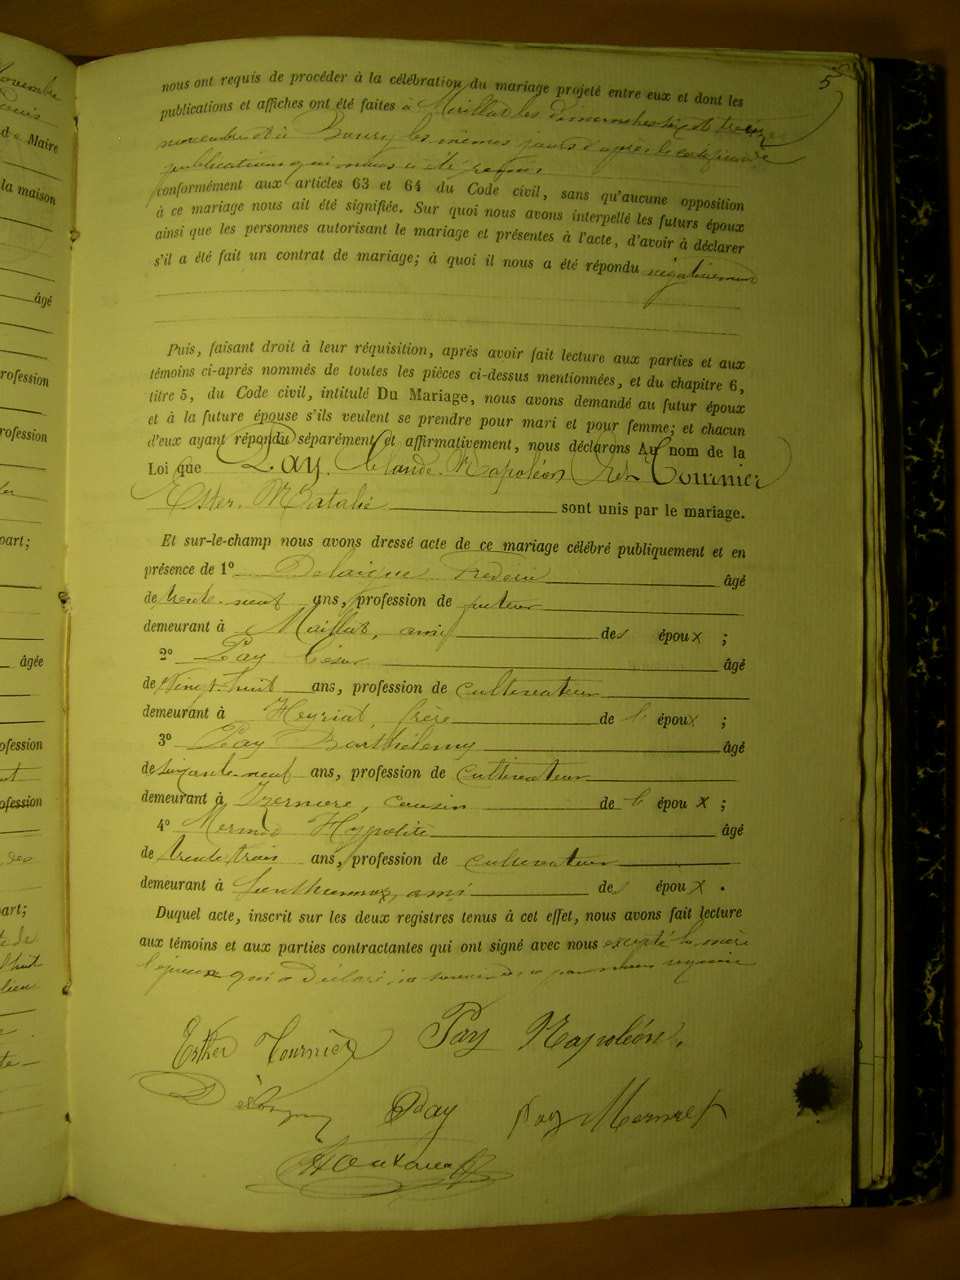 5
nous ont requis de procéder à la célébration du mariage projeté entre eux et dont les
publications et affiches ont été faites à Maillat les dimanches six et treize
novembre et à Bourg les mêmes jours d'après le certificat de
publications qui nous a été
conformément aux articles 63 et 64 du Code civil, sans qu'aucune opposition
à ce mariage nous ait été signifiée. Sur quoi nous avons interpellé les futurs époux
ainsi que les personnes autorisant le mariage et présentes à l'acte, d'avoir à déclarer
s'il a été fait un contrat de mariage; à quoi il nous a été répondu négativement
Puis, faisant droit à leur réquisition, après avoir fait lecture aux parties et aux
témoins ci-après nommés de toutes les pièces ci-dessus mentionnées, et du chapitre 6,
titre 5, du Code civil, intitulé Du Mariage, nous avons demandé au futur époux
et à la future épouse s'ils veulent se prendre pour mari et pour femme; et chacun
d'eux ayant répondu séparément et affirmativement, nous déclarons Au nom de la
Loi que Pay Claude Napoléon et Tournier
Ester Natalie sont unis par le mariage.
Et sur-le-champ nous avons dressé acte de ce mariage célébré publiquement et en
présence de 1° âgé
de trente-neuf ans, profession de
demeurant à Maillat, ami des époux ;
2° Pay César âgé
de vingt-huit ans, profession de cultivateur
demeurant à Heyriat, frère de l' époux ;
3° Pay Barthélemy âgé
de soixante-neuf ans, profession de cultivateur
demeurant à Izernore, cousin de l' époux ;
4° Mermet Hyppolite âgé
de trente trois ans, profession de cultivateur
demeurant à ami des époux .
Duquel acte, inscrit sur les deux registres tenus à cet effet, nous avons fait lecture
aux témoins et aux parties contractantes qui ont signé avec nous excepté la mère
qui a déclaré
Esther Tournier Pay Napoléon.
Pay Pay Mermet